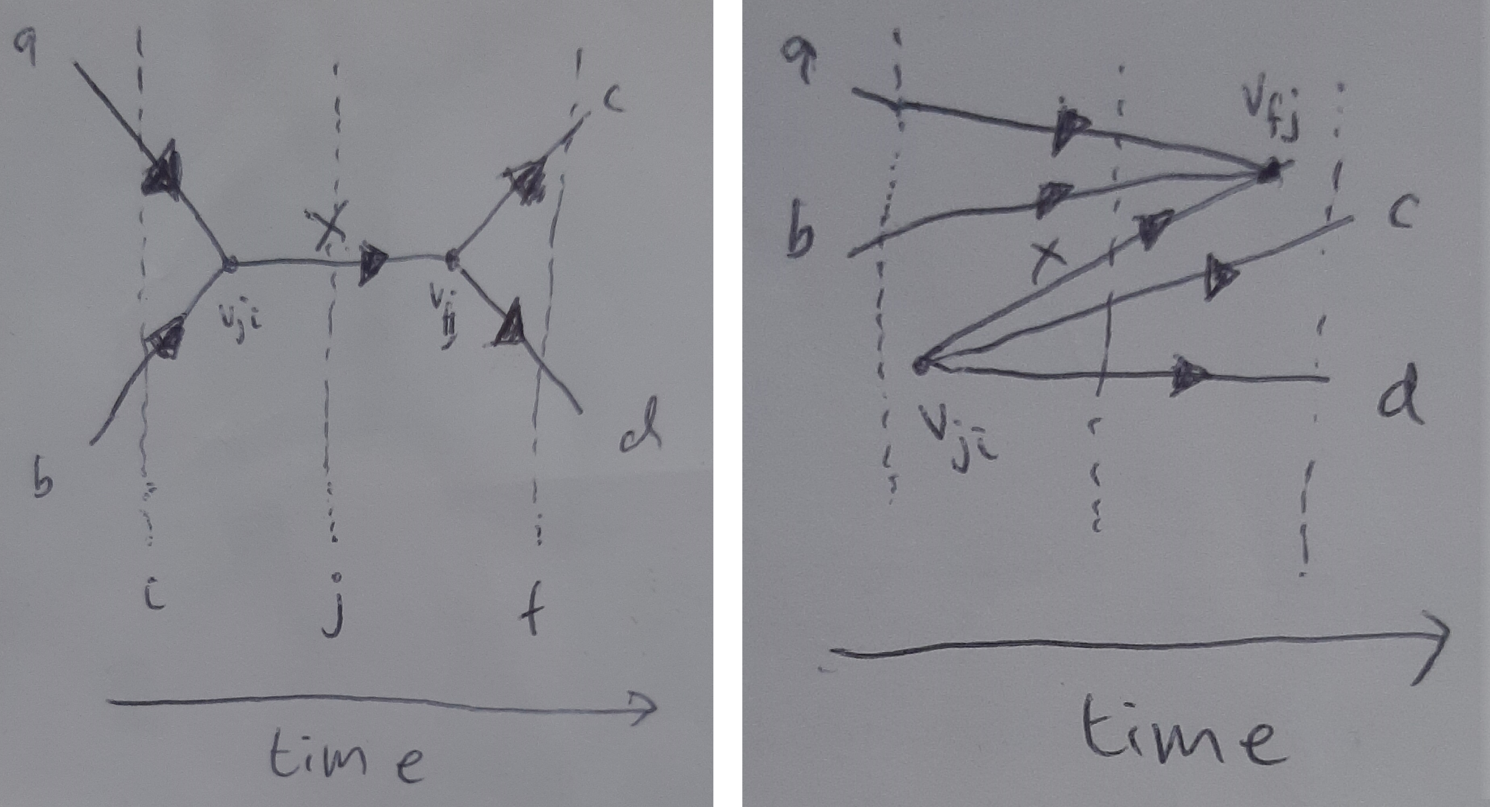 a
c
X
V_ji
V_fj
b
d
i
j
f
time
a
V_fj
b
X
c
V_ji
d
time